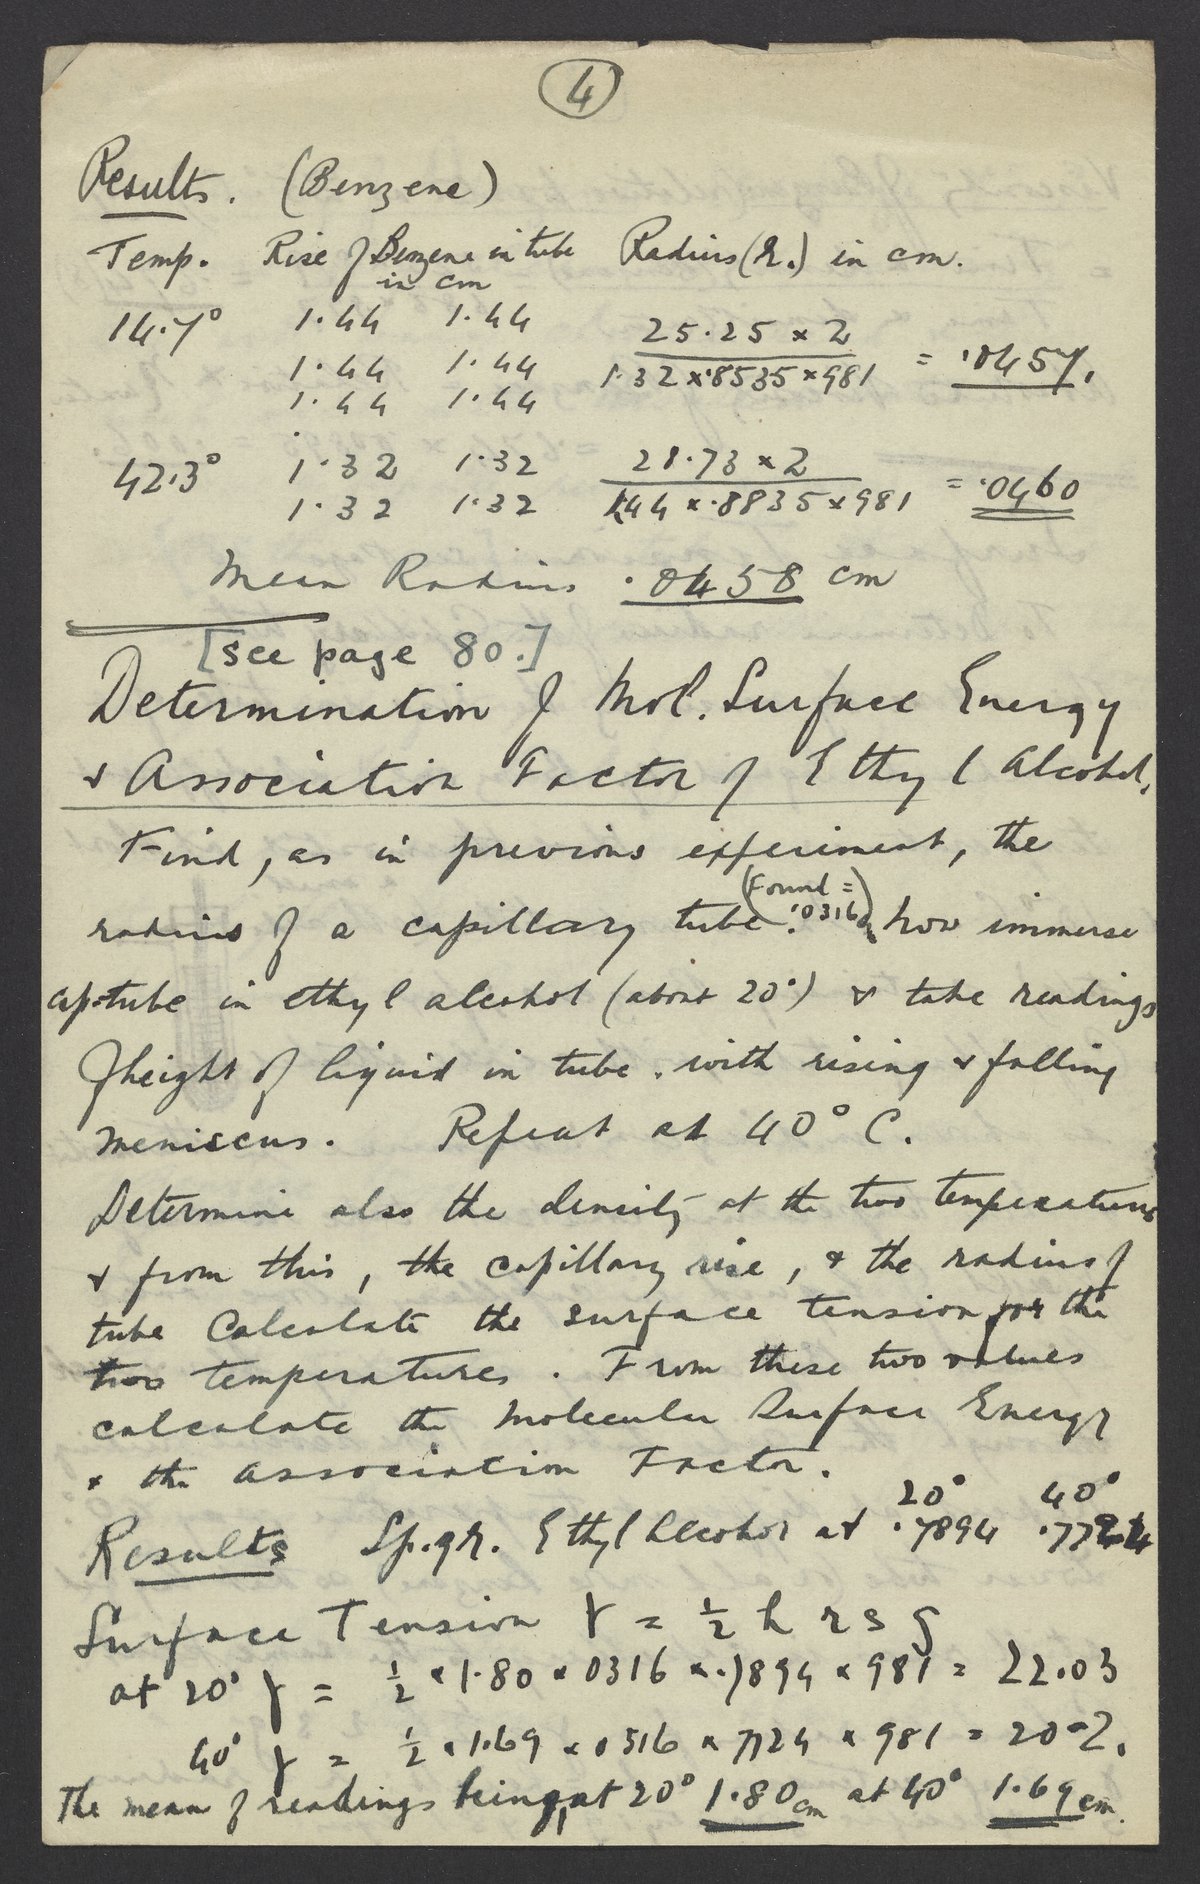 4
Results. (Benzene)
Temp. Rise of Benzene in tube Radius (r.) in cm.
in cm
14.7° 1.44 1.44 25.25 × 2
1.44 1.44 1.32 × .8535 × 981 = .0457.
1.44 1.44
42.3° 1.32 1.32 28.73 × 2
1.32 1.32 1.44 × .8835 × 981 = .0460
Mean Radius .0458 cm
[see page 80.]
Determination of Mol. Surface Energy
& Association Factor of Ethyl Alcohol.
Find, as in previous experiment, the
(Found =
radius of a capillary tube. .0316) Now immerse
cap-tube in ethyl alcohol (about 20°) & take readings
of height of liquid in tube. with rising & falling
meniscus. Repeat at 40° C.
Determine also the density at the two temperatures
& from this, the capillary rise, & the radius of
tube Calculate the surface tension for the
two temperatures. From these two values
calculate the Molecular Surface Energy
& the Association Factor.
20° 40°
Results Sp.gr. Ethyl Alcohol at .7894 .7724
Surface Tension γ = ½ h r s g
at 20° γ = ½ × 1.80 × 0316 × .7894 × 981 = 22.03
40° γ = ½ × 1.69 × 0316 × 7724 × 981 = 20.2.
The mean of readings being at 20° 1.80 cm at 40° 1.69 cm.